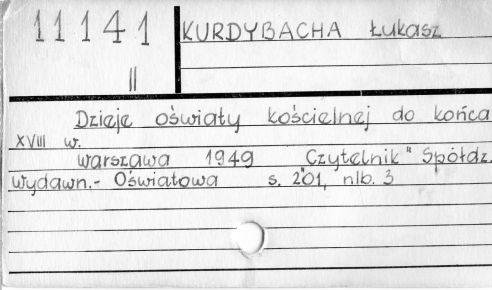 11141
KURDYBACHA Łukasz
II
Dzieje oświaty kościelnej do końca
XVIII w.
Warszawa 1949 Czytelnik" Spółdz.
Wydawn.- Oświatowa s. 201, nlb. 3